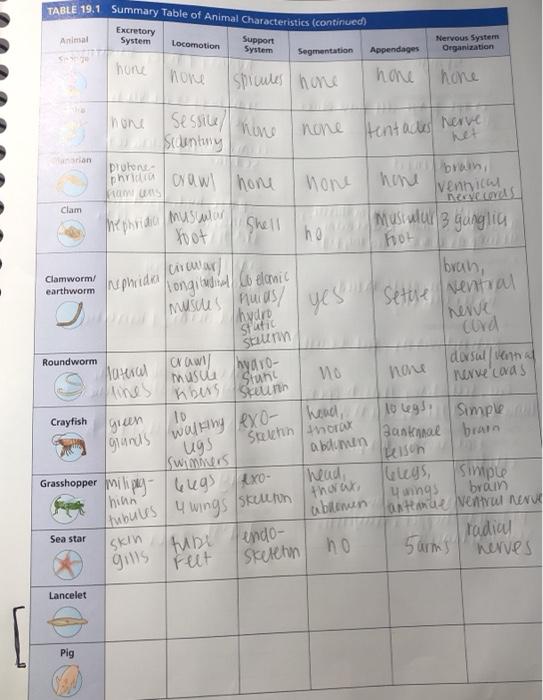 TABLE 19.1 Summary Table of Animal Characteristics (continued)
Animal
Excretory System
Locomotion
Support System
Segmentation
Appendages
Nervous System Organization
none
none
spicules
none
none
none
none
Sessile/
Sedentary
none
none
tentacles
nerve
net
protone-
phridia
crawl
none
none
none
brain,
nerve cords
Clam
nephridia
muscular
foot
Shell
no
Muscular
foot
3 ganglia
Clamworm/
earthworm
nephridia
circular/
longitudinal
muscles
fluids/
hydro
static
yes
brain,
ventral
nerve
cord
Roundworm
lateral
lines
crawl/
muscle
fibers
hydro-
static
no
none
dorsal/ventral
nerve cords
Crayfish
green
glands
10
walking
legs
swimmers
exo-
head,
thorax
abdomen
10 legs,
Simple
brain
Grasshopper
tubules
6 legs
4 wings
exo-
skeleton
head,
thorax,
abdomen
6 legs,
4 wings
antennae
simple
brain
ventral nerve
Sea star
skin
gills
tube
feet
endo-
no
5 arms
radial
nerves
Lancelet
Pig